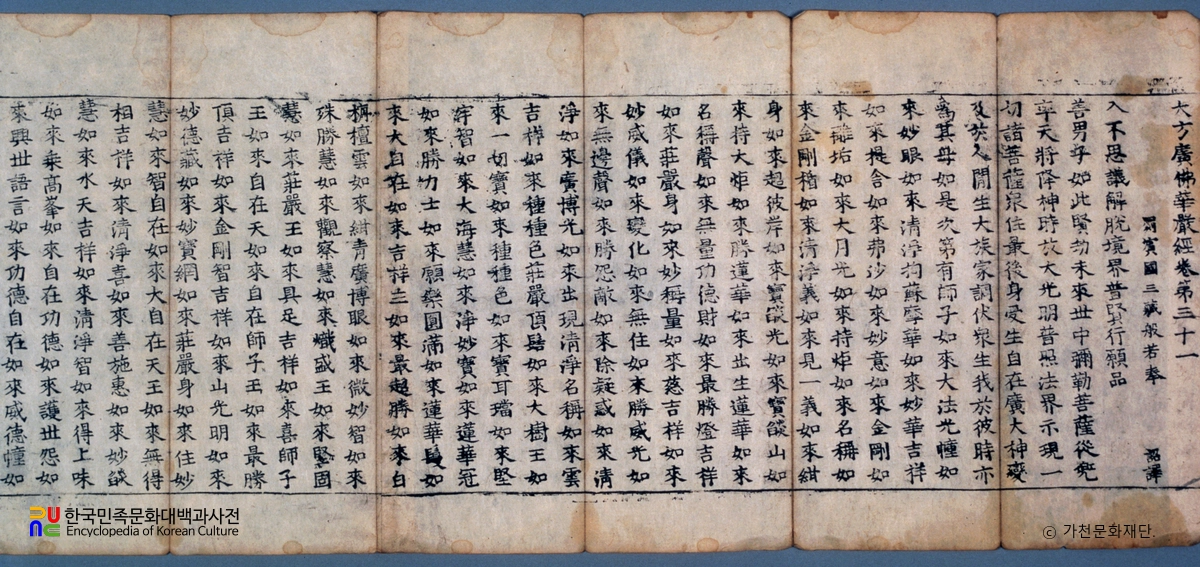 大方廣佛華嚴經卷第三十一
罽賓國三藏般若奉 詔譯
入不思議解脫境界普賢行願品
善男子如此賢劫未來世中彌勒菩薩從兜
率天將降神時放大光明普照法界示現一
切諸菩薩衆住最後身受生自在廣大神變
及於人間生大族家調伏衆生我於彼時亦
爲其母如是次第有師子如來大法光幢如
來妙眼如來清淨拘蘇摩華如來妙華吉祥
如來提舍如來弗沙如來妙意如來金剛如
來離垢如來大月光如來持炬如來名稱如
來金剛楯如來清淨義如來見一義如來紺
身如來超彼岸如來寶燄光如來寶燄山如
來持大炬如來勝蓮華如來出生蓮華如來
名稱聲如來無量功德財如來最勝燈吉祥
如來莊嚴身如來妙稱量如來慈吉祥如來
妙威儀如來變化如來無住如來勝威光如
來無邊聲如來勝怨敵如來除疑惑如來清
淨如來廣博光如來出現清淨名稱如來雲
吉祥如來種種色莊嚴頂髻如來大樹王如
來一切寶如來種種色如來寶耳璫如來堅
牢智如來大海慧如來淨妙寶如來蓮華冠
如來勝力士如來願樂圓滿如來蓮華鬘如
來大自在如來吉祥主如來最超勝如來白
栴檀雲如來紺青廣博眼如來微妙智如來
殊勝慧如來觀察慧如來熾盛王如來堅固
慧如來莊嚴王如來具足吉祥如來喜師子
王如來自在天如來自在師子王如來最勝
頂吉祥如來金剛智吉祥如來山光明如來
妙德藏如來妙寶網如來莊嚴身如來住妙
慧如來智自在如來大自在天王如來無得
相吉祥如來清淨喜如來善施惠如來妙燄
慧如來水天吉祥如來清淨智如來得上味
如來乘高峯如來自在功德如來護世怨如
來興世語言如來功德自在如來威德幢如
한국민족문화대백과사전
Encyclopedia of Korean Culture
© 가천문화재단.